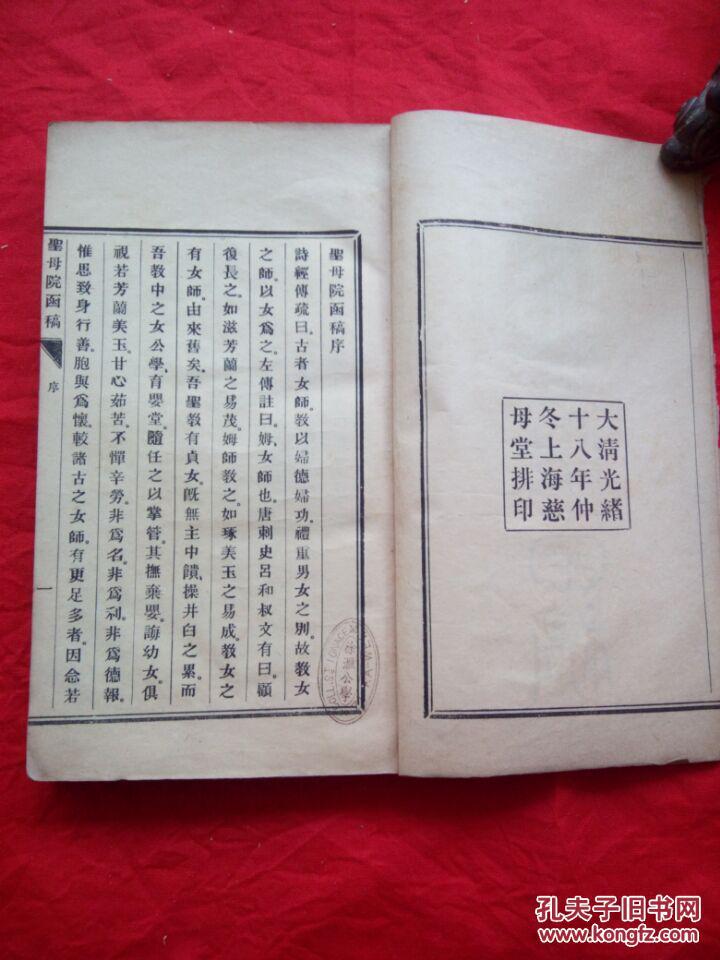 大清光緒
十八年仲
冬上海慈
母堂排印
聖母院函稿序
詩經傳疏曰。古者女師。教以婦德婦功。禮重男女之別。故教女
之師。以女爲之。左傳註曰。姆。女師也。唐刺史呂和叔文有曰。顧
復長之。如滋芳蘭之易茂。姆師教之。如琢美玉之易成。教女之
有女師。由來舊矣。吾聖教有貞女。旣無主中饋、操井臼之累。而
吾教中之女公學、育嬰堂。隨任之以掌管。其撫棄嬰。誨幼女。俱
視若芳蘭美玉。甘心茹苦。不憚辛勞。非爲名。非爲利。非爲德報。
惟思致身行善。胞與爲懷。較諸古之女師。有更足多者。因念若
聖母院函稿
序
一
徐滙公學
孔夫子旧书网
www.kongfz.com